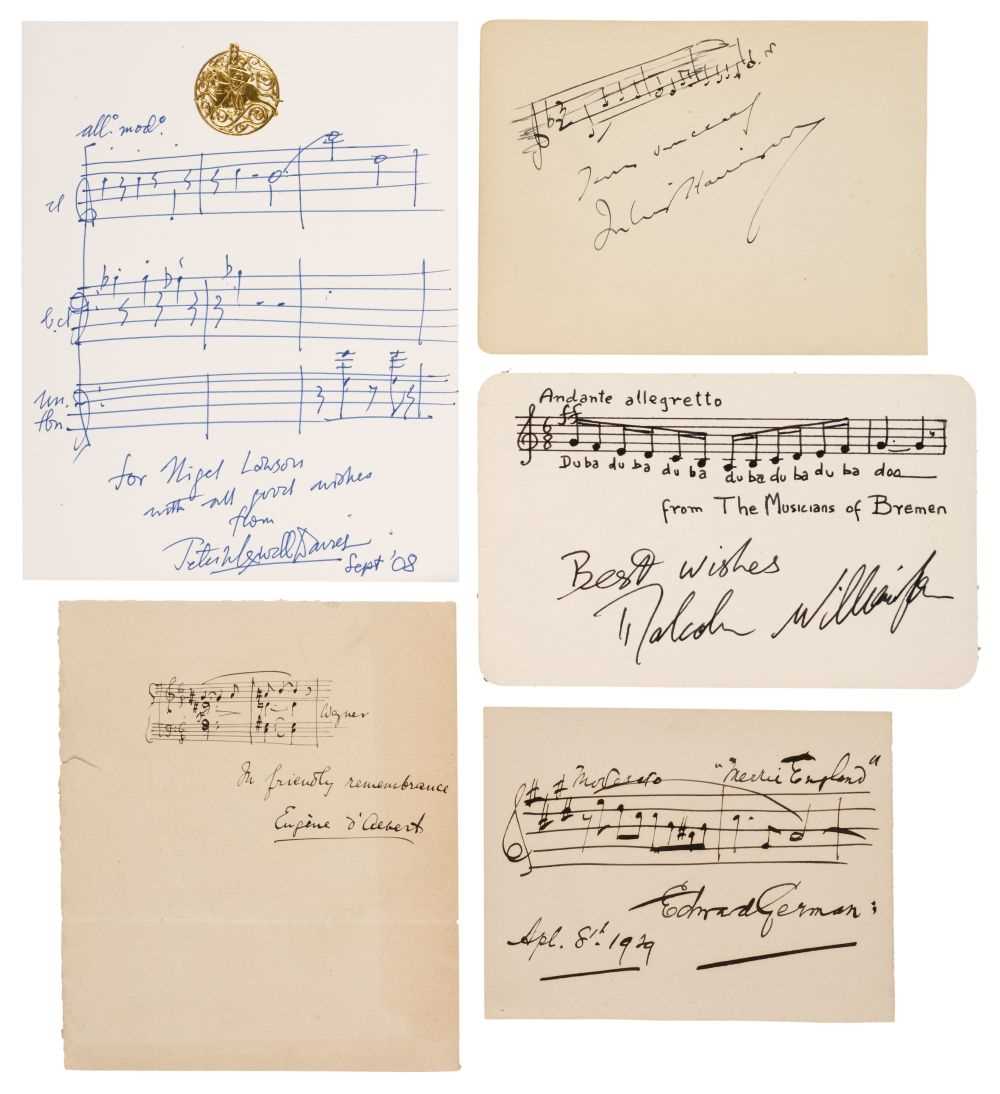 all.° mod.°
cl
b.cl
tbn
for Nigel Lawson
with all good wishes
from
Peter Maxwell Davies
Sept '08
Yours sincerely
Julius Harrison
Andante allegretto
ff
6
8
Duba du ba du ba du ba du ba du ba doo
from The Musicians of Bremen
Best wishes
Malcolm Williamson
Wagner
In friendly remembrance
Eugène d'Albert
Moderato "Merrie England"
Edward German:
Apl. 8th. 1929